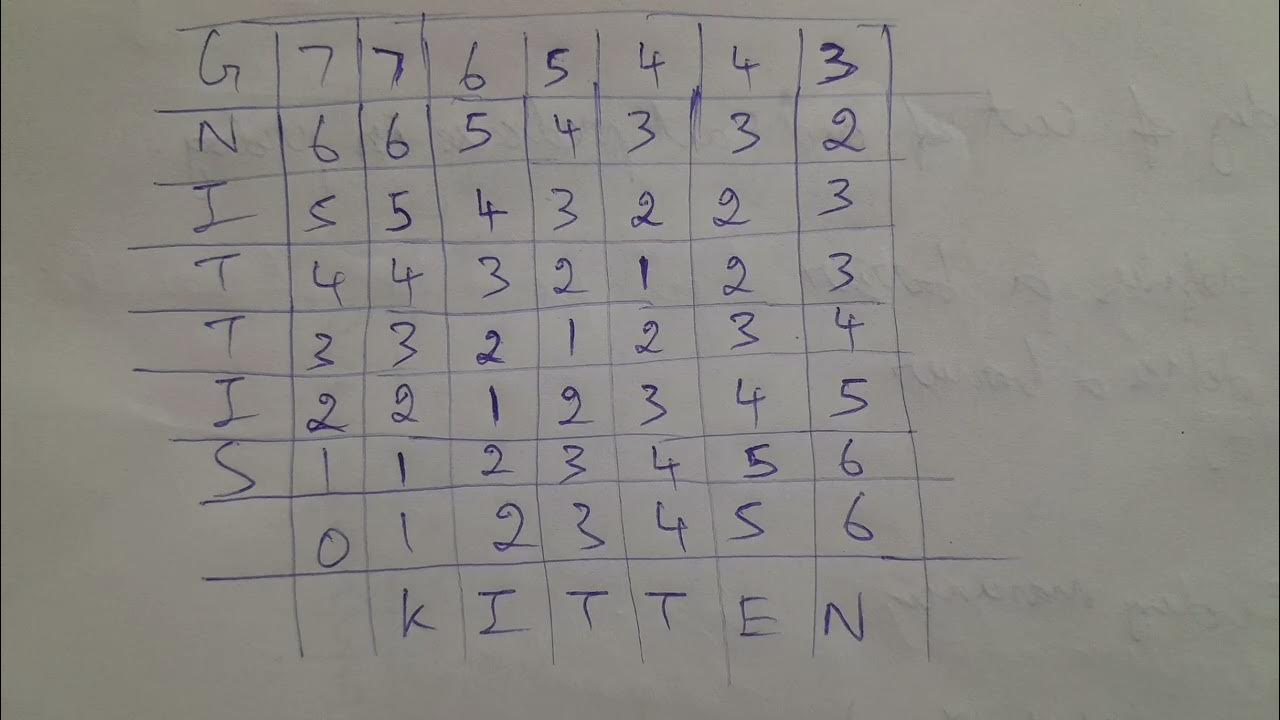 G 7 7 6 5 4 4 3
N 6 6 5 4 3 3 2
I 5 5 4 3 2 2 3
T 4 4 3 2 1 2 3
T 3 3 2 1 2 3 4
I 2 2 1 2 3 4 5
S 1 1 2 3 4 5 6
0 1 2 3 4 5 6
K I T T E N